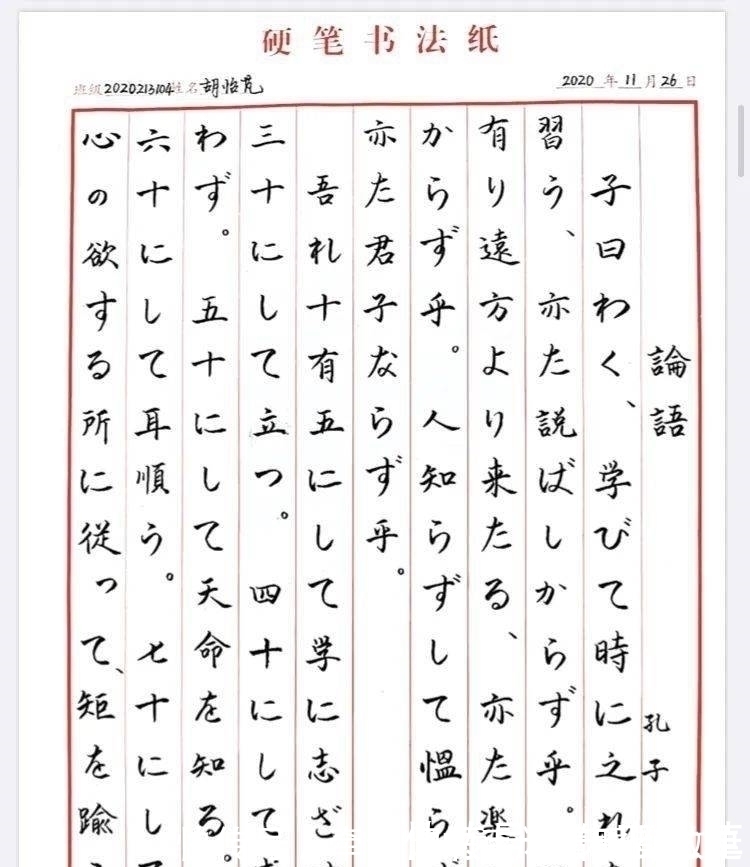 硬笔书法纸
班级2020213104姓名胡怡芃
2020年11月26日
論語
孔子
子曰わく、学びて時に之れ
習う、亦た説ばしからず乎。
有り遠方より来たる、亦た楽
からず乎。人知らずして慍ら
亦た君子ならず乎。
吾れ十有五にして学に志ざ
三十にして立つ。四十にして
わず。五十にして天命を知る。
六十にして耳順う。七十にし
心の欲する所に従って、矩を踰